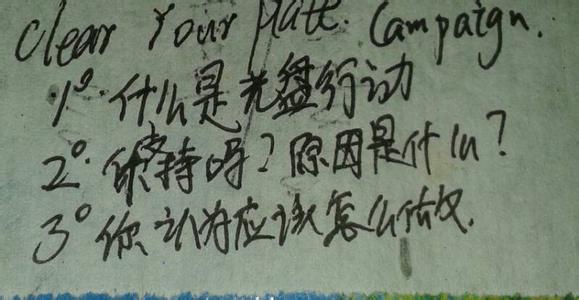 Clear Your Plate. Campaign.
1°. 什么是光盘行动
2°. 你支持吗？原因是什么？
3° 你认为应该怎么做.